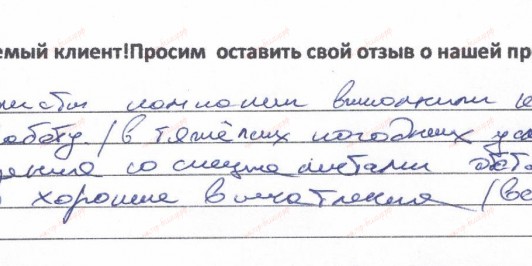 емый клиент!Просим оставить свой отзыв о нашей пр
компании выполнили
работу. (в тяжёлых погодных ус
со специалистами
хорошие впечатления (ве